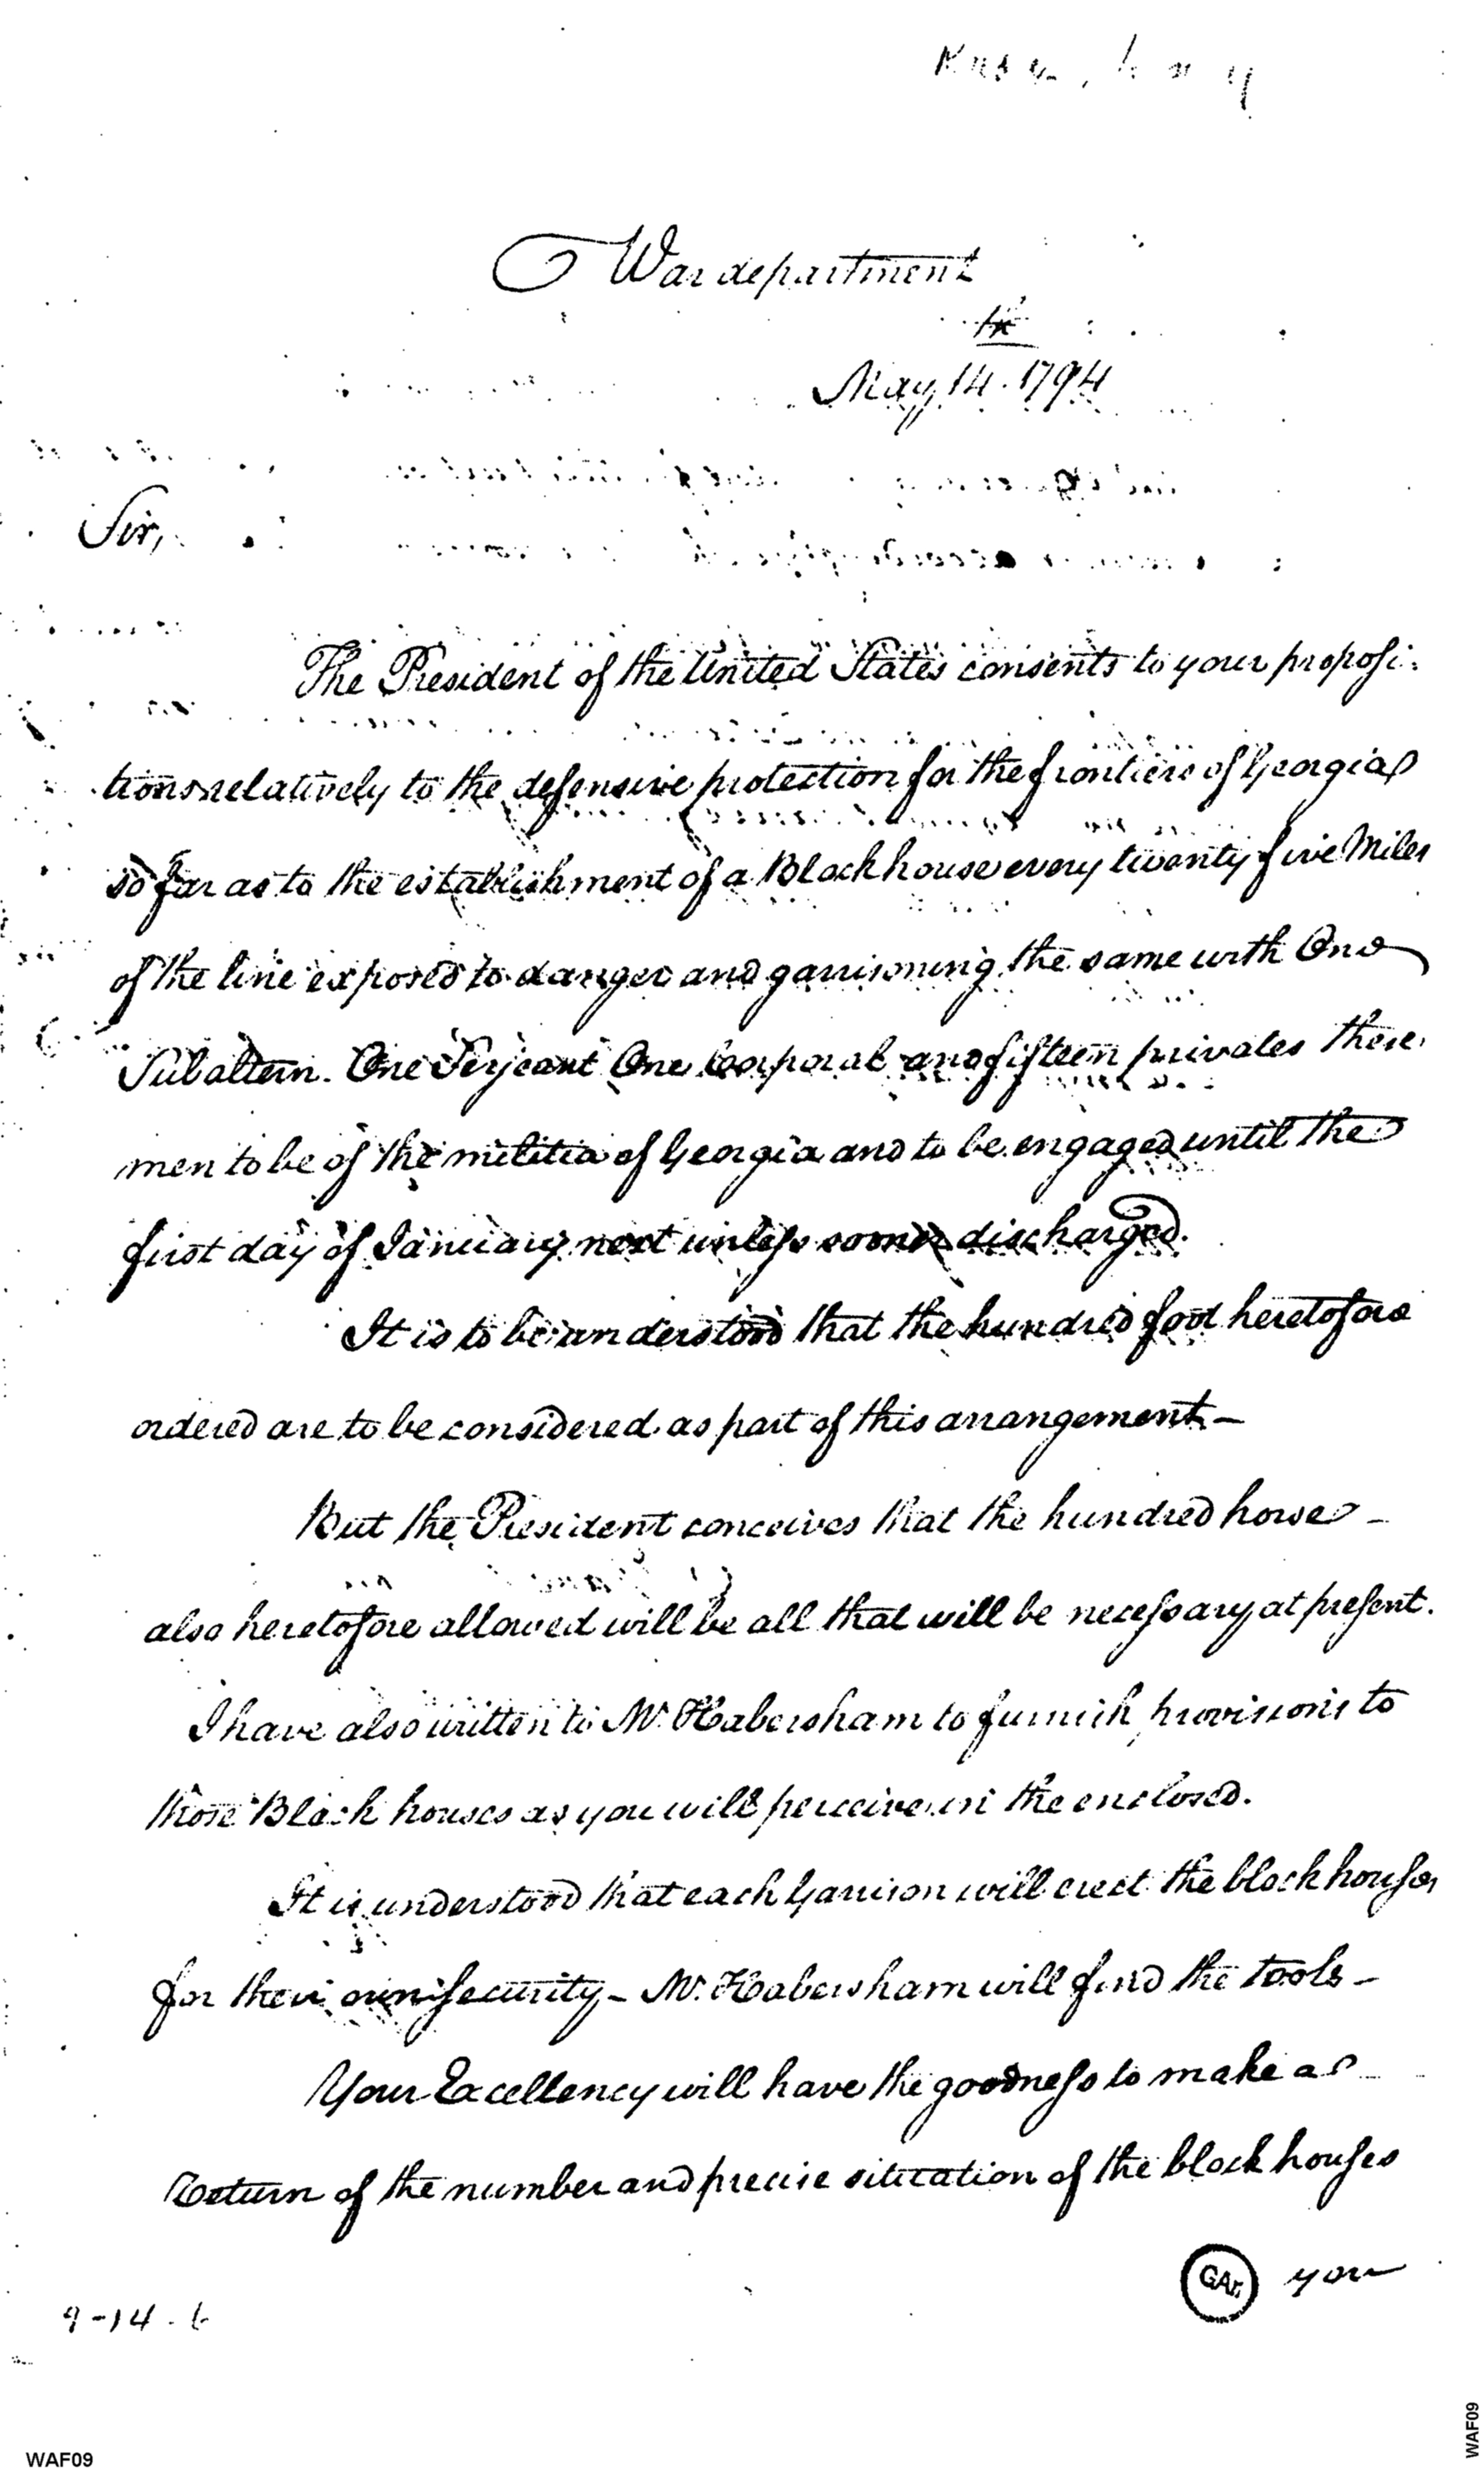 War department
May 14. 1794
Sir,
The President of the United States consents to your proposi-
tions relatively to the defensive protection for the frontiers of Georgia
so far as to the establishment of a Block house every twenty five Miles
of the line exposed to danger and garrisoning the same with One
Subaltern. One Serjeant One Corporal and fifteen privates these
men to be of the militia of Georgia and to be engaged until the
first day of January next unless sooner discharged.
It is to be understood that the hundred foot heretofore
ordered are to be considered as part of this arrangement -
But the President conceives that the hundred horse -
also heretofore allowed will be all that will be necessary at present.
I have also written to Mr. Habersham to furnish provisions to
those Block houses as you will perceive in the enclosed.
It is understood that each Garrison will erect the block houses
for their own security - Mr. Habersham will find the tools -
Your Excellency will have the goodness to make a
return of the number and precise situation of the block houses
GAr. you
9-14-6
WAF09
WAF09